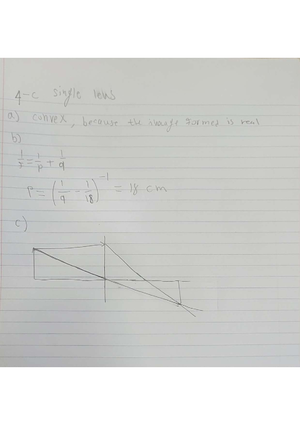 4-c single lens
a) convex, because the image formed is real
b)
1/f = 1/p + 1/q
P = (1/9 - 1/18)^-1 = 18 cm
c)